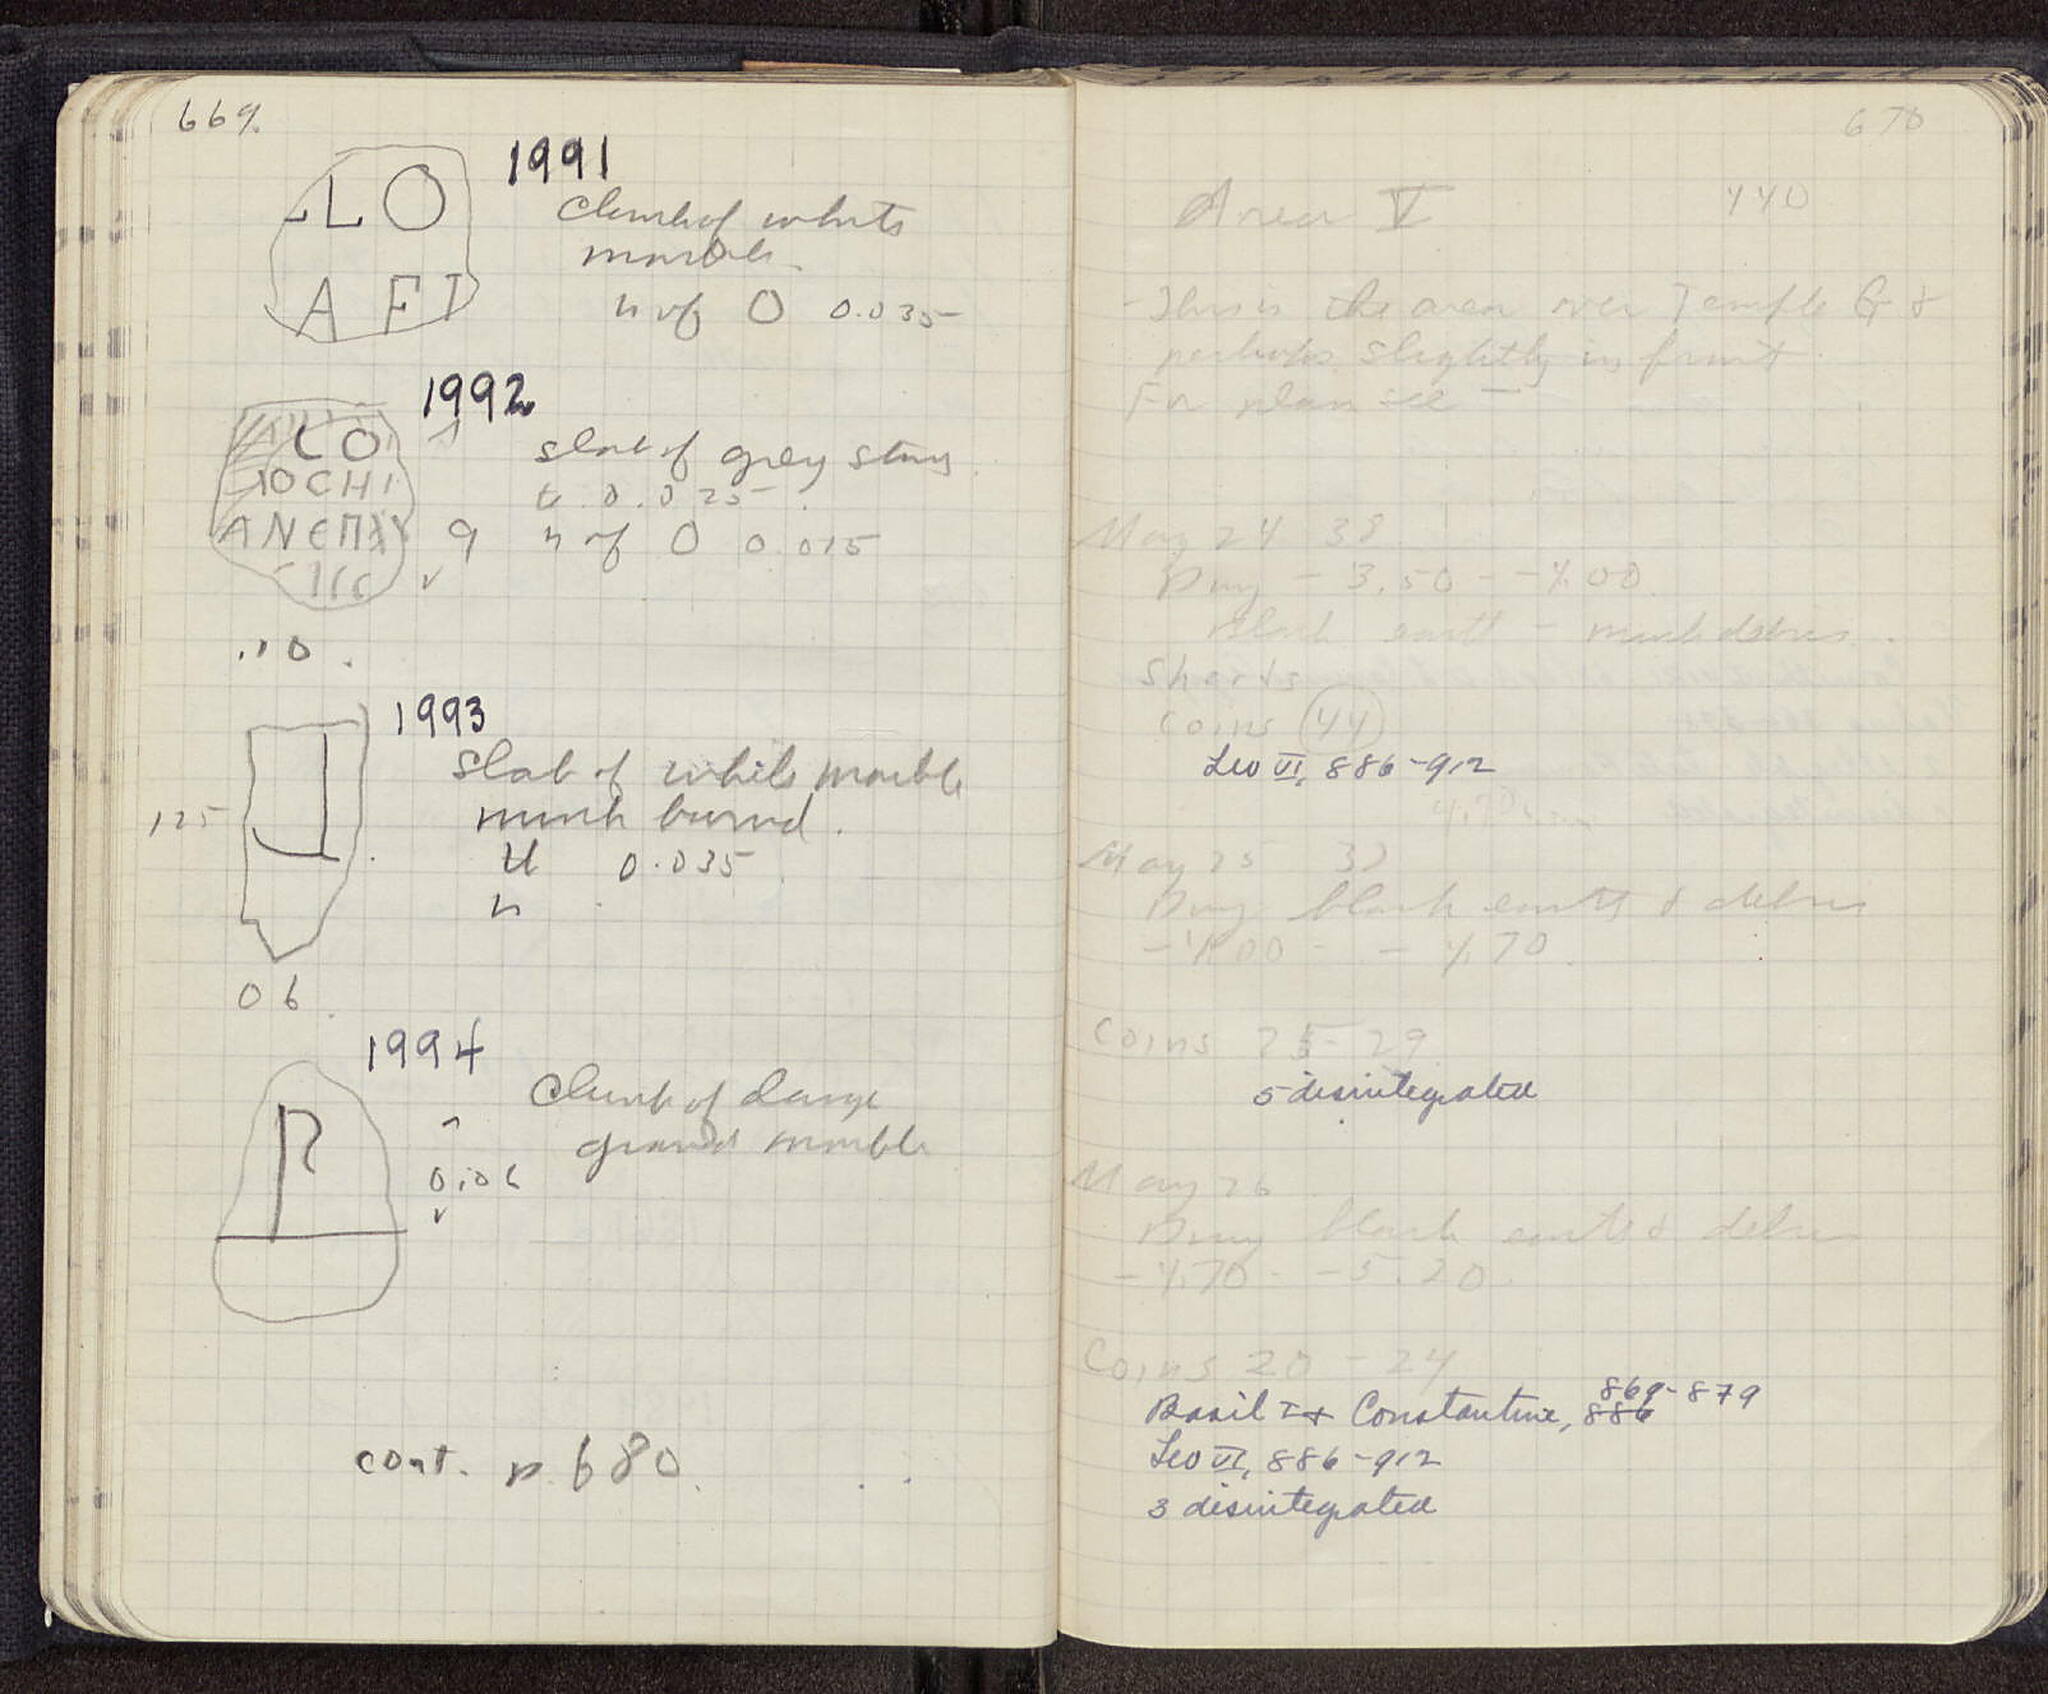 669.
1991
LO
AFI
Chunk of white
marble.
h of O 0.035
1992
LO
OCHI
ΑΝΕΠΧ
slab of grey stone
t 0.025
9 h of O 0.015
.10.
1993
Slab of white marble
much burned.
125
tt 0.035
h
06
1994
P
Chunk of large
grained marble
0.06
cont. p. 680.
670
Area V 440
This is the area over Temple G &
perhaps slightly in front.
For plan see —
May 24 38
Dug - 3.50 - - 4.00
black earth - much debris.
Sherds
Coins (44)
Leo VI, 886-912
May 25
Dug black earth & debris
- 4.00 - - 4.70.
Coins 25-29
5 disintegrated
May 26
Dug black earth & debris
- 4.70 - - 5.20.
Coins 20-24
869-879
Basil I + Constantine, 886
Leo VI, 886-912
3 disintegrated